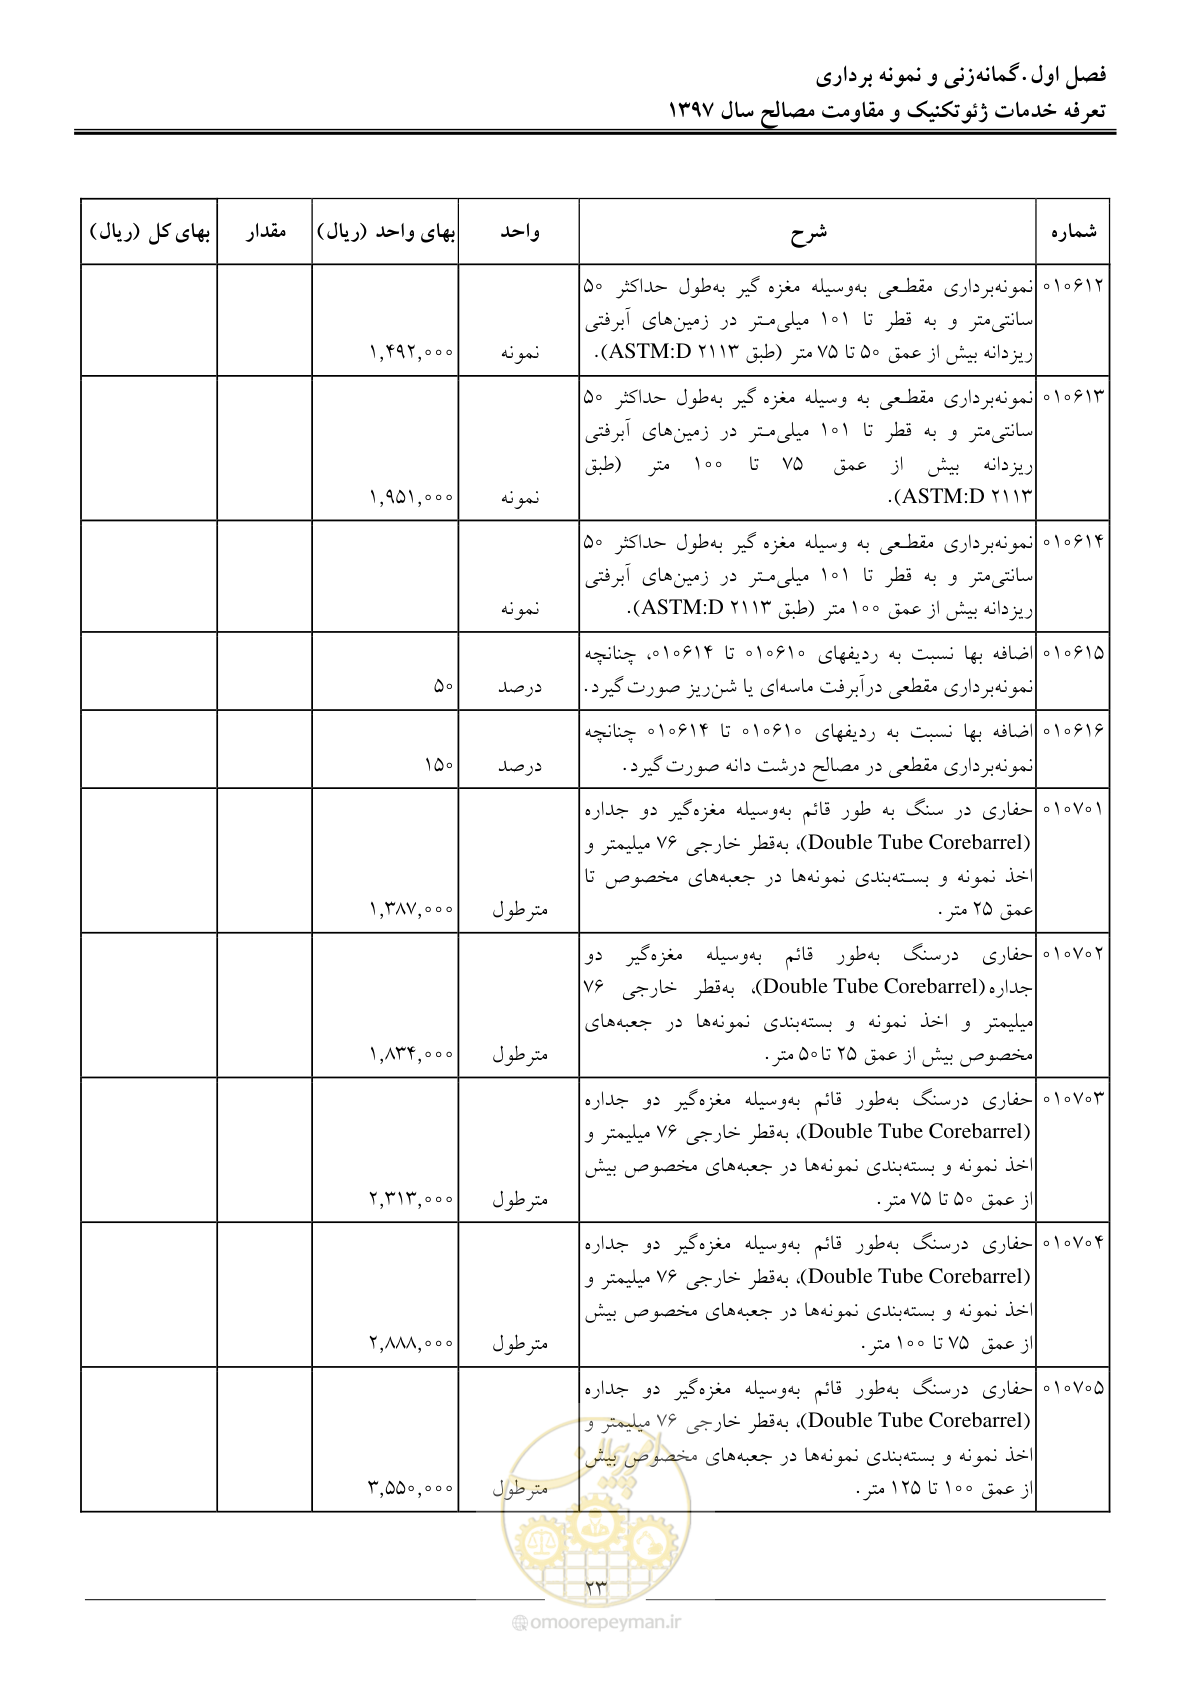 فصل اول.گمانه‌زنی و نمونه برداری
تعرفه خدمات ژئوتکنیک و مقاومت مصالح سال ۱۳۹۷
شماره شرح واحد بهای واحد (ریال) مقدار بهای کل (ریال)
۰۱۰۶۱۲ نمونه‌برداری مقطعی به‌وسیله مغزه گیر به‌طول حداکثر ۵۰
سانتی‌متر و به قطر تا ۱۰۱ میلی‌متر در زمین‌های آبرفتی
ریزدانه بیش از عمق ۵۰ تا ۷۵ متر (طبق ASTM:D ۲۱۱۳). نمونه ۱,۴۹۲,۰۰۰
۰۱۰۶۱۳ نمونه‌برداری مقطعی به وسیله مغزه گیر به‌طول حداکثر ۵۰
سانتی‌متر و به قطر تا ۱۰۱ میلی‌متر در زمین‌های آبرفتی
ریزدانه بیش از عمق ۷۵ تا ۱۰۰ متر (طبق
ASTM:D ۲۱۱۳). نمونه ۱,۹۵۱,۰۰۰
۰۱۰۶۱۴ نمونه‌برداری مقطعی به وسیله مغزه گیر به‌طول حداکثر ۵۰
سانتی‌متر و به قطر تا ۱۰۱ میلی‌متر در زمین‌های آبرفتی
ریزدانه بیش از عمق ۱۰۰ متر (طبق ASTM:D ۲۱۱۳). نمونه
۰۱۰۶۱۵ اضافه بها نسبت به ردیفهای ۰۱۰۶۱۰ تا ۰۱۰۶۱۴، چنانچه
نمونه‌برداری مقطعی درآبرفت ماسه‌ای یا شن‌ریز صورت گیرد. درصد ۵۰
۰۱۰۶۱۶ اضافه بها نسبت به ردیفهای ۰۱۰۶۱۰ تا ۰۱۰۶۱۴ چنانچه
نمونه‌برداری مقطعی در مصالح درشت دانه صورت گیرد. درصد ۱۵۰
۰۱۰۷۰۱ حفاری در سنگ به طور قائم به‌وسیله مغزه‌گیر دو جداره
(Double Tube Corebarrel)، به‌قطر خارجی ۷۶ میلیمتر و
اخذ نمونه و بسته‌بندی نمونه‌ها در جعبه‌های مخصوص تا
عمق ۲۵ متر. مترطول ۱,۳۸۷,۰۰۰
۰۱۰۷۰۲ حفاری درسنگ به‌طور قائم به‌وسیله مغزه‌گیر دو
جداره(Double Tube Corebarrel)، به‌قطر خارجی ۷۶
میلیمتر و اخذ نمونه و بسته‌بندی نمونه‌ها در جعبه‌های
مخصوص بیش از عمق ۲۵ تا۵۰ متر. مترطول ۱,۸۳۴,۰۰۰
۰۱۰۷۰۳ حفاری درسنگ به‌طور قائم به‌وسیله مغزه‌گیر دو جداره
(Double Tube Corebarrel)، به‌قطر خارجی ۷۶ میلیمتر و
اخذ نمونه و بسته‌بندی نمونه‌ها در جعبه‌های مخصوص بیش
از عمق ۵۰ تا ۷۵ متر. مترطول ۲,۳۱۳,۰۰۰
۰۱۰۷۰۴ حفاری درسنگ به‌طور قائم به‌وسیله مغزه‌گیر دو جداره
(Double Tube Corebarrel)، به‌قطر خارجی ۷۶ میلیمتر و
اخذ نمونه و بسته‌بندی نمونه‌ها در جعبه‌های مخصوص بیش
از عمق ۷۵ تا ۱۰۰ متر. مترطول ۲,۸۸۸,۰۰۰
۰۱۰۷۰۵ حفاری درسنگ به‌طور قائم به‌وسیله مغزه‌گیر دو جداره
(Double Tube Corebarrel)، به‌قطر خارجی ۷۶ میلیمتر و
اخذ نمونه و بسته‌بندی نمونه‌ها در جعبه‌های مخصوص بیش
از عمق ۱۰۰ تا ۱۲۵ متر. مترطول ۳,۵۵۰,۰۰۰
امور پیمان
۲۳
omoorepeyman.ir